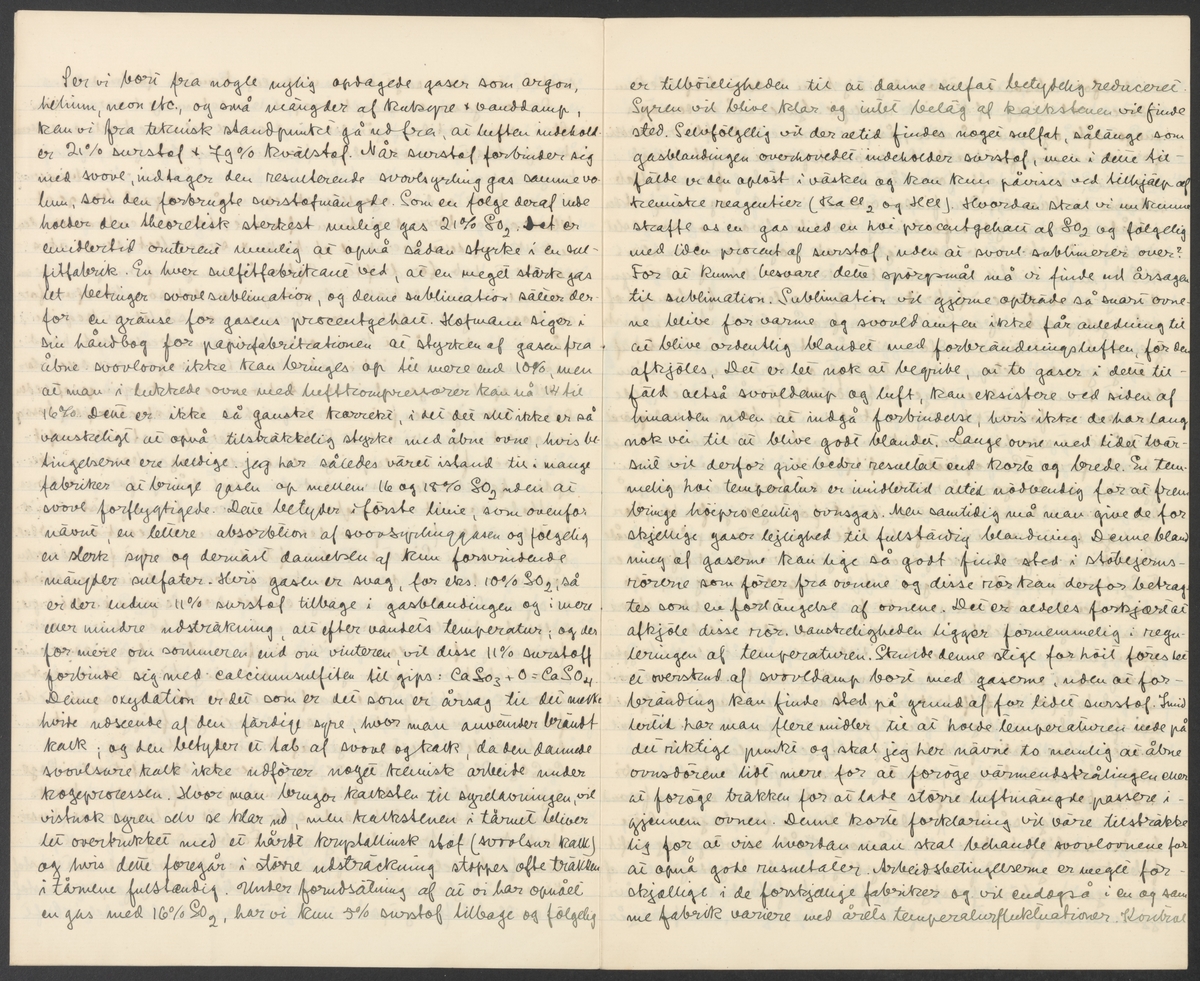 Ser vi bort fra nogle nylig opdagede gaser som argon,
helium, neon etc., og små mängder af kulsyre & vanddamp,
kan vi fra teknisk standpunkt gå ud fra, at luften indehold
er 21% surstof & 79% kvälstof. Når surstof forbinder sig
med svovl, indtager den resulterende svovlsyrling gas samme vo
lum, som den forbrugte surstofmängde. Som en följe deraf inde
holder den theoretisk sterkest mulige gas 21% SO2. Det er
imidlertid omtrent umulig at opnå sådan styrke i en sul-
fitfabrik. En hver sulfitfabrikant ved, at en meget stärk gas
let betinger svovlsublimation, og denne sublimation sätter der-
for en gränse for gasens procentgehalt. Hofmann siger i
sin håndbog for papirfabrikationen at styrken af gasen fra
åbne svovlovne ikke kan bringes op til mere end 10%, men
at man i lukkede ovne med luftkompressorer kan nå 14 til
16%. Dette er ikke så ganske korrekt, i det det slet ikke er så
vanskeligt at opnå tilsträkkelig styrke med åbne ovne, hvis be
tingelserne ere heldige. Jeg har således väret istand til i mange
fabriker at bringe gasen op mellem 16 og 18% SO2 uden at
svovl forflygtigede. Dette betyder i förste linie, som ovenfor
nävnt, en lettere absorbtion af svovsyrlinggasen og fölgelig
en sterk syre og dernäst dannelsen af kun forsvindende
mängder sulfater. Hvis gasen er svag, for eks. 10% SO2, så
er der endnu 11% surstof tilbage i gasblandingen og i mere
eller mindre udsträkning, alt efter vandets temperatur; og der
for mere om sommeren end om vinteren, vil disse 11% surstoff
forbinde sig med calciumsulfiten til gips: CaSO3 + O = CaSO4
Denne oxydation er det som er det som er årsag til det melke
hvide udseende af den färdige syre, hvor man anvender brändt
kalk; og den betyder et tab af svovl og kalk, da den dannede
svovlsure kalk ikke udförer noget kemisk arbeide under
kogeprocessen. Hvor man bruger kalksten til syrelavningen, vil
vistnok syren selv se klar ud, men kalkstenen i tårnet bliver
let overtrukket med et hårdt krystallinsk stof (svovlsur kalk)
og hvis dette foregår i större udsträckning stoppes ofte träkken
i tårnene fulständig. Under forudsätning af at vi har opnået
en gas med 16% SO2, har vi kun 5% surstof tilbage og fölgelig
er tilböieligheden til at danne sulfat betydelig reduceret.
Syren vil blive klar og intet beläg af kalkstenen vil finde
sted. Selvfölgelig vil der altid findes noget sulfat, sålänge som
gasblandingen overhovedet indeholder surstof, men i dette til-
fälde er den oplöst i väsken og kan kun påvises ved tilhjälp af
kemiske reagentier (BaCl2 og HCl). Hvordan skal vi nu kunne
skaffe os en gas med en höi procentgehalt af SO2 og fölgelig
med liden procent af surstof, uden at svovl sublimerer over?
For at kunne besvare dette spörgsmål må vi finde ud årsagen
til sublimation. Sublimation vil gjerne opträde så snart ovne-
ne blive for varme og svovldampen ikke får anledning til
at blive ordentlig blandet med forbrändningsluften, för den
afkjöles. Det er let nok at begribe, at to gaser i dette til-
fäld altså svovldamp og luft, kan eksistere ved siden af
hinanden uden at indgå forbindelse, hvis ikke de har lang
nok vei til at blive godt blandet. Lange ovne med lidet tvär-
snit vil derfor give bedre resultat end korte og brede. En tem-
melig höi temperatur er imidlertid altid nödvendig for at frem
bringe höiprocentlig ovnsgas. Men samtidig må man give de for
skjellige gaser lejlighed til fulständig blandning. Denne bland
ning af gaserne kan lige så godt finde sted i stöbejerns-
rörerne som förer fra ovnene og disse rör kan derfor betrag-
tes som en forlängelse af ovnene. Det er aldeles forkjært at
afkjöle disse rör. Vanskeligheden ligger fornemmelig i regu-
leringen af temperaturen. Skulde denne stige for höit föres let
et overskud af svovldamp bort med gaserne, uden at for-
bränding kan finde sted på grund af for lidet surstof. Imid
lertid har man flere midler til at holde temperaturen nede på
det riktige punkt og skal jeg her nävne to nemlig at åbne
ovnsdörene lidt mere for at foröge värmeudstrålingen eller
at foröge träkken for at lade större luftmängde passere i-
gjennem ovnen. Denne korte forklaring vil väre tilsträkke
lig for at vise hvordan man skal behandle svovlovnene for
at opnå gode resultater. Arbeidsbetingelserne er meget for-
skjellige i de forskjellige fabriker og vil endogså i en og sam
me fabrik variere med årets temperaturfluktuationer. Kontrol